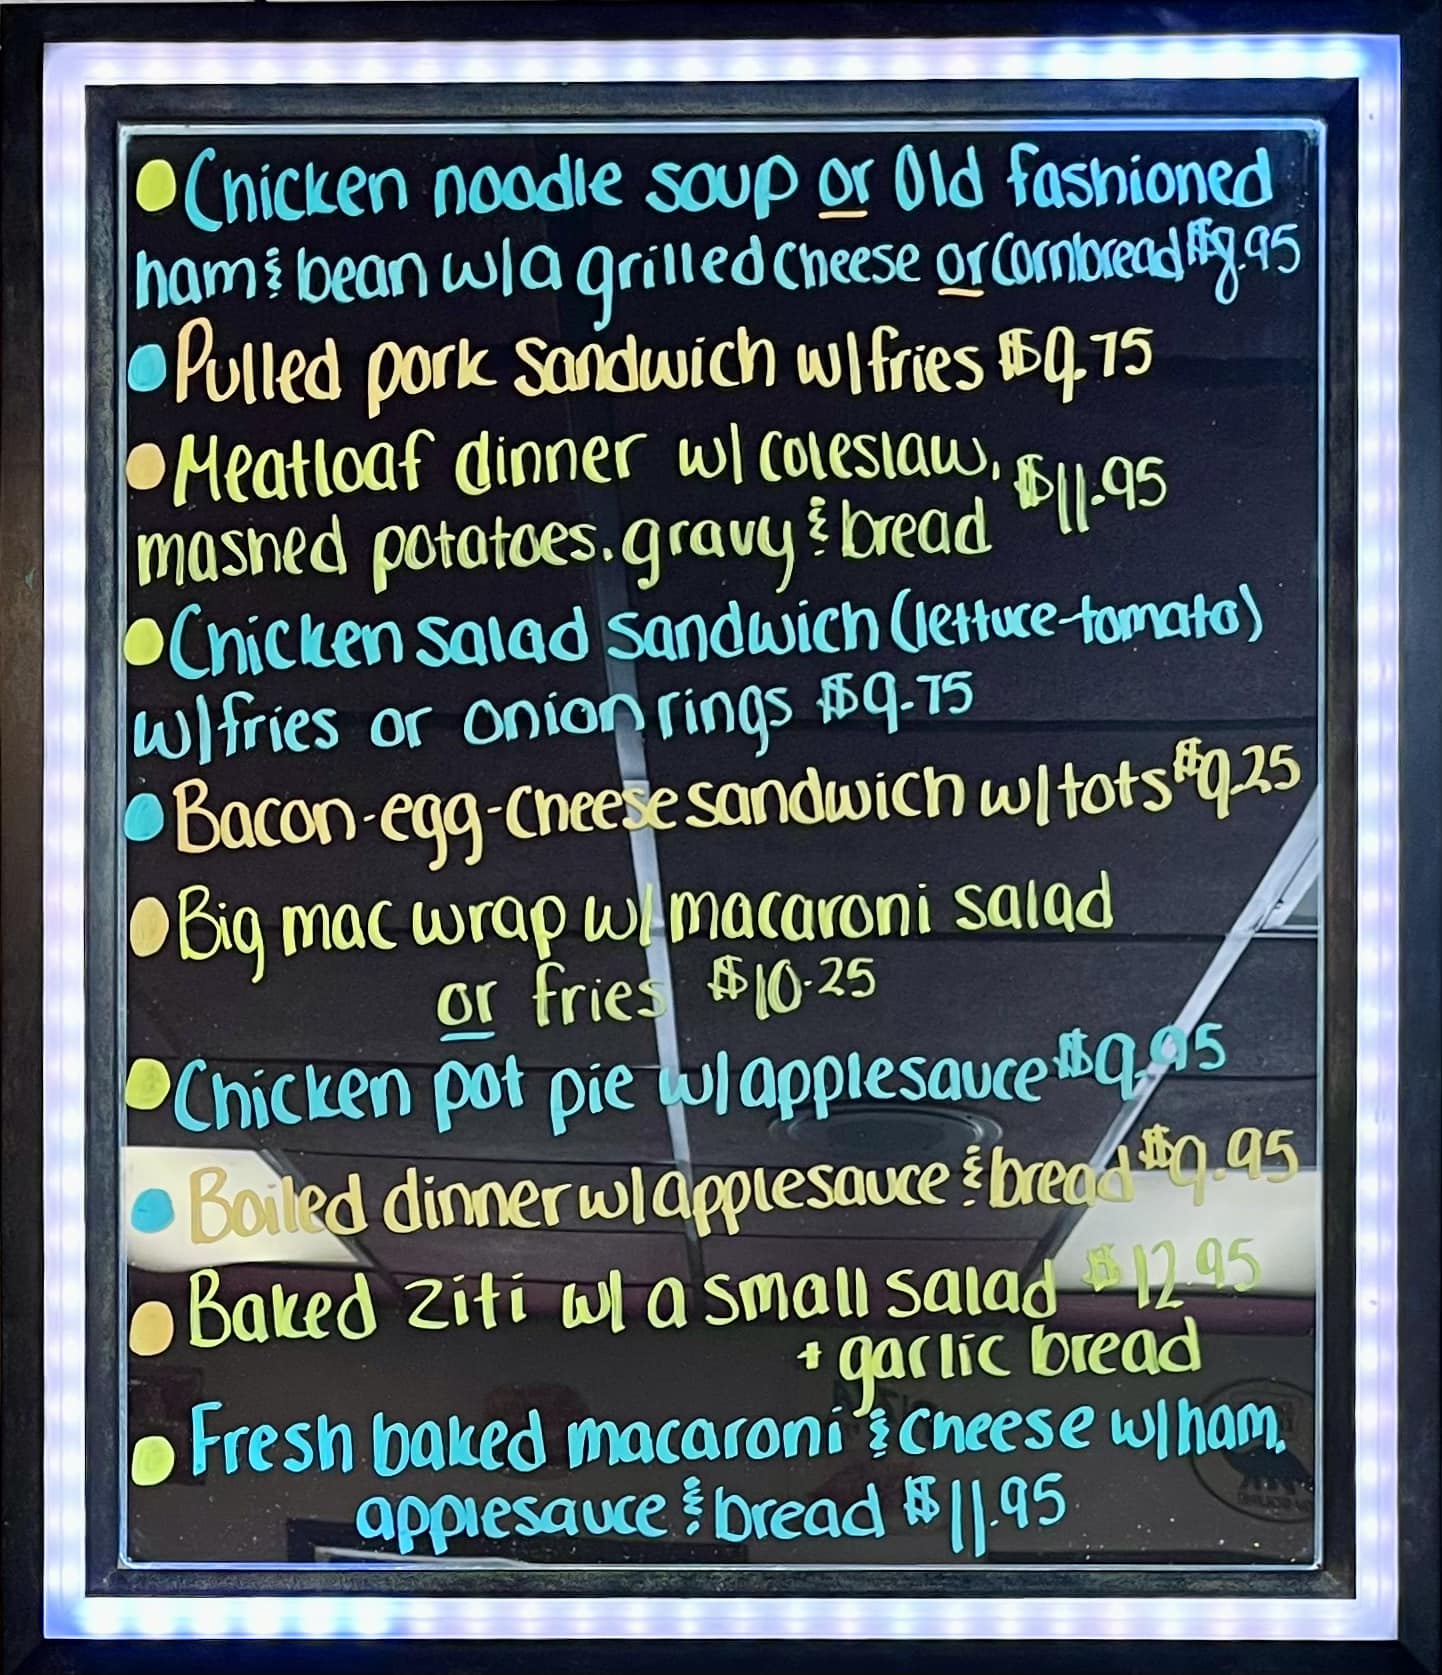 Chicken noodle soup or Old fashioned
ham & bean w/a grilled cheese or Cornbread $8.95
Pulled pork sandwich w/fries $9.75
Meatloaf dinner w/ coleslaw, $11.95
mashed potatoes, gravy & bread
Chicken salad sandwich (lettuce-tomato)
w/fries or onion rings $9.75
Bacon-egg-cheese sandwich w/tots $9.25
Big mac wrap w/ macaroni salad
or fries $10.25
Chicken pot pie w/applesauce $9.95
Boiled dinner w/applesauce & bread $9.95
Baked ziti w/ a small salad $12.95
+ garlic bread
Fresh baked macaroni & cheese w/ham,
applesauce & bread $11.95